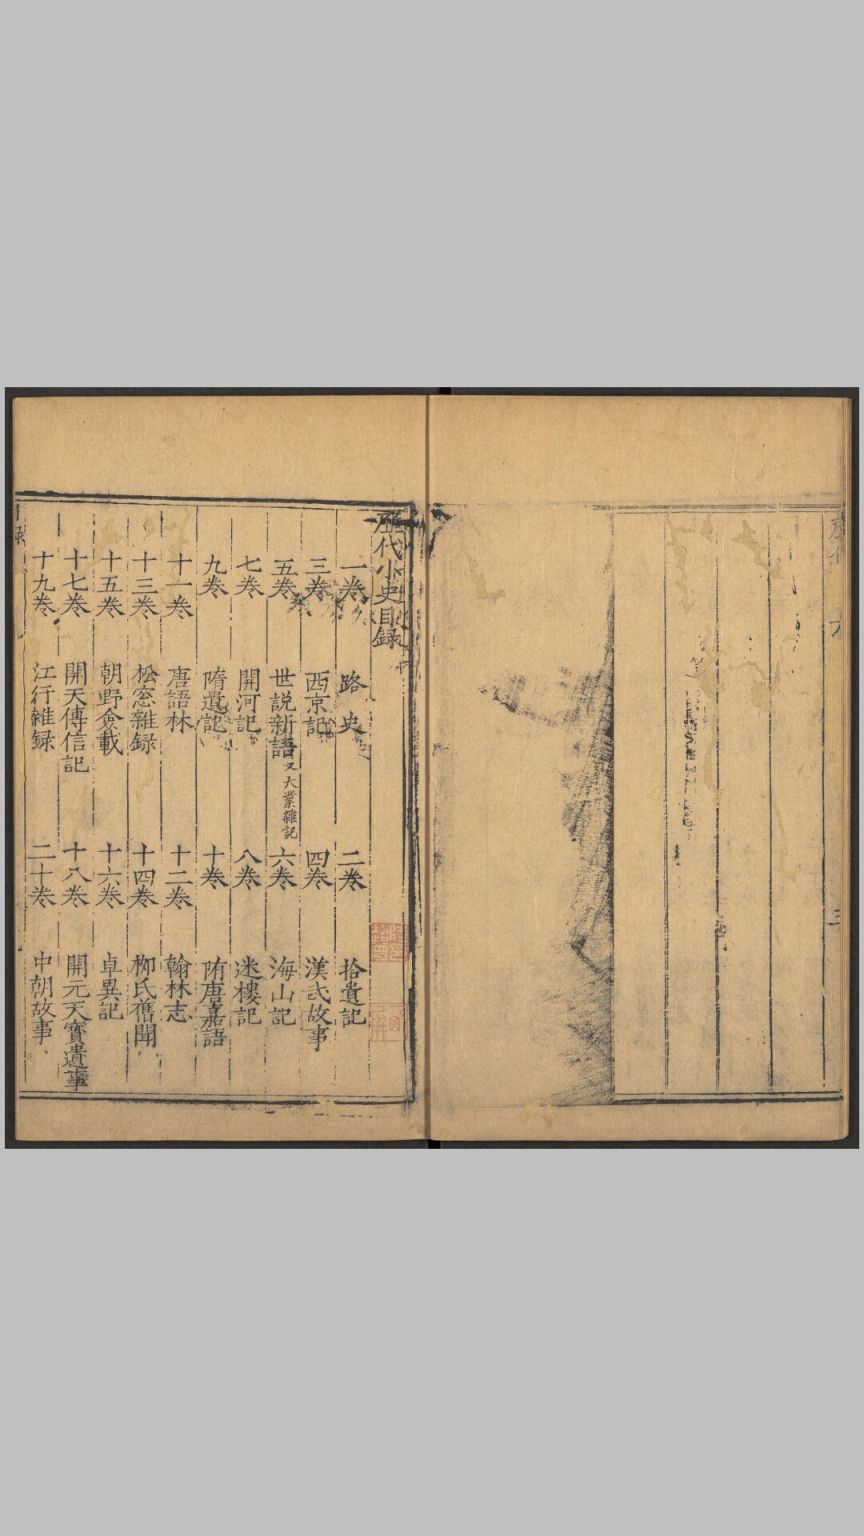 歷代小史目録
一巻 路史 二巻 拾遺記
三巻 西京記 四巻 漢武故事
五巻 世説新語 又大業雜記 六巻 海山記
七巻 開河記 八巻 迷樓記
九巻 隋遺記 十巻 隋唐嘉語
十一巻 唐語林 十二巻 翰林志
十三巻 松窓雜録 十四巻 柳氏舊聞
十五巻 朝野僉載 十六巻 卓異記
十七巻 開天傳信記 十八巻 開元天寳遺事
十九巻 江行雜録 二十巻 中朝故事